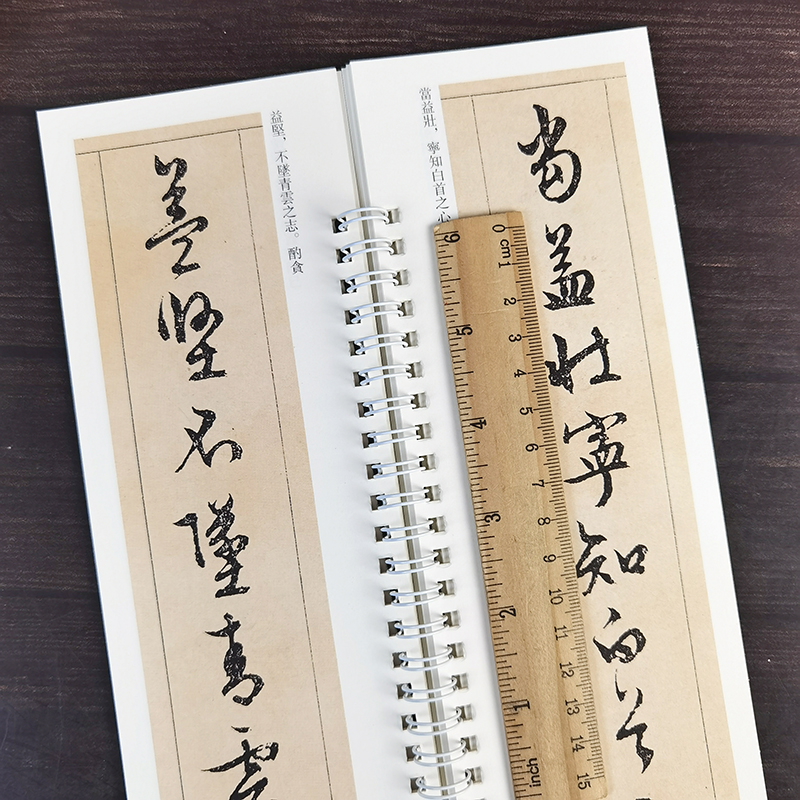 當益壯寧知白首
0 cm 1 2 3 4 5 6 7 8 9 10 11 12 13 14 15
6 5 4 3 2 1 inch
當益壯，寧知白首之心
益堅，不墜青雲之志。酌貪
益堅不墜青雲